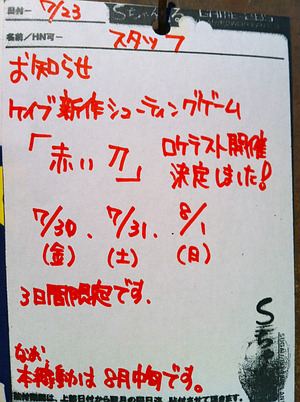 日付— 7/23
名前／HN可— スタッフ
お知らせ
ケイブ新作シューティングゲーム
「赤い刀」 ロケテスト開催
決定しました!
7/30、7/31、8/1
(金) (土) (日)
3日間限定です。
なお
本稼動は8月中旬です。
Sちゃん